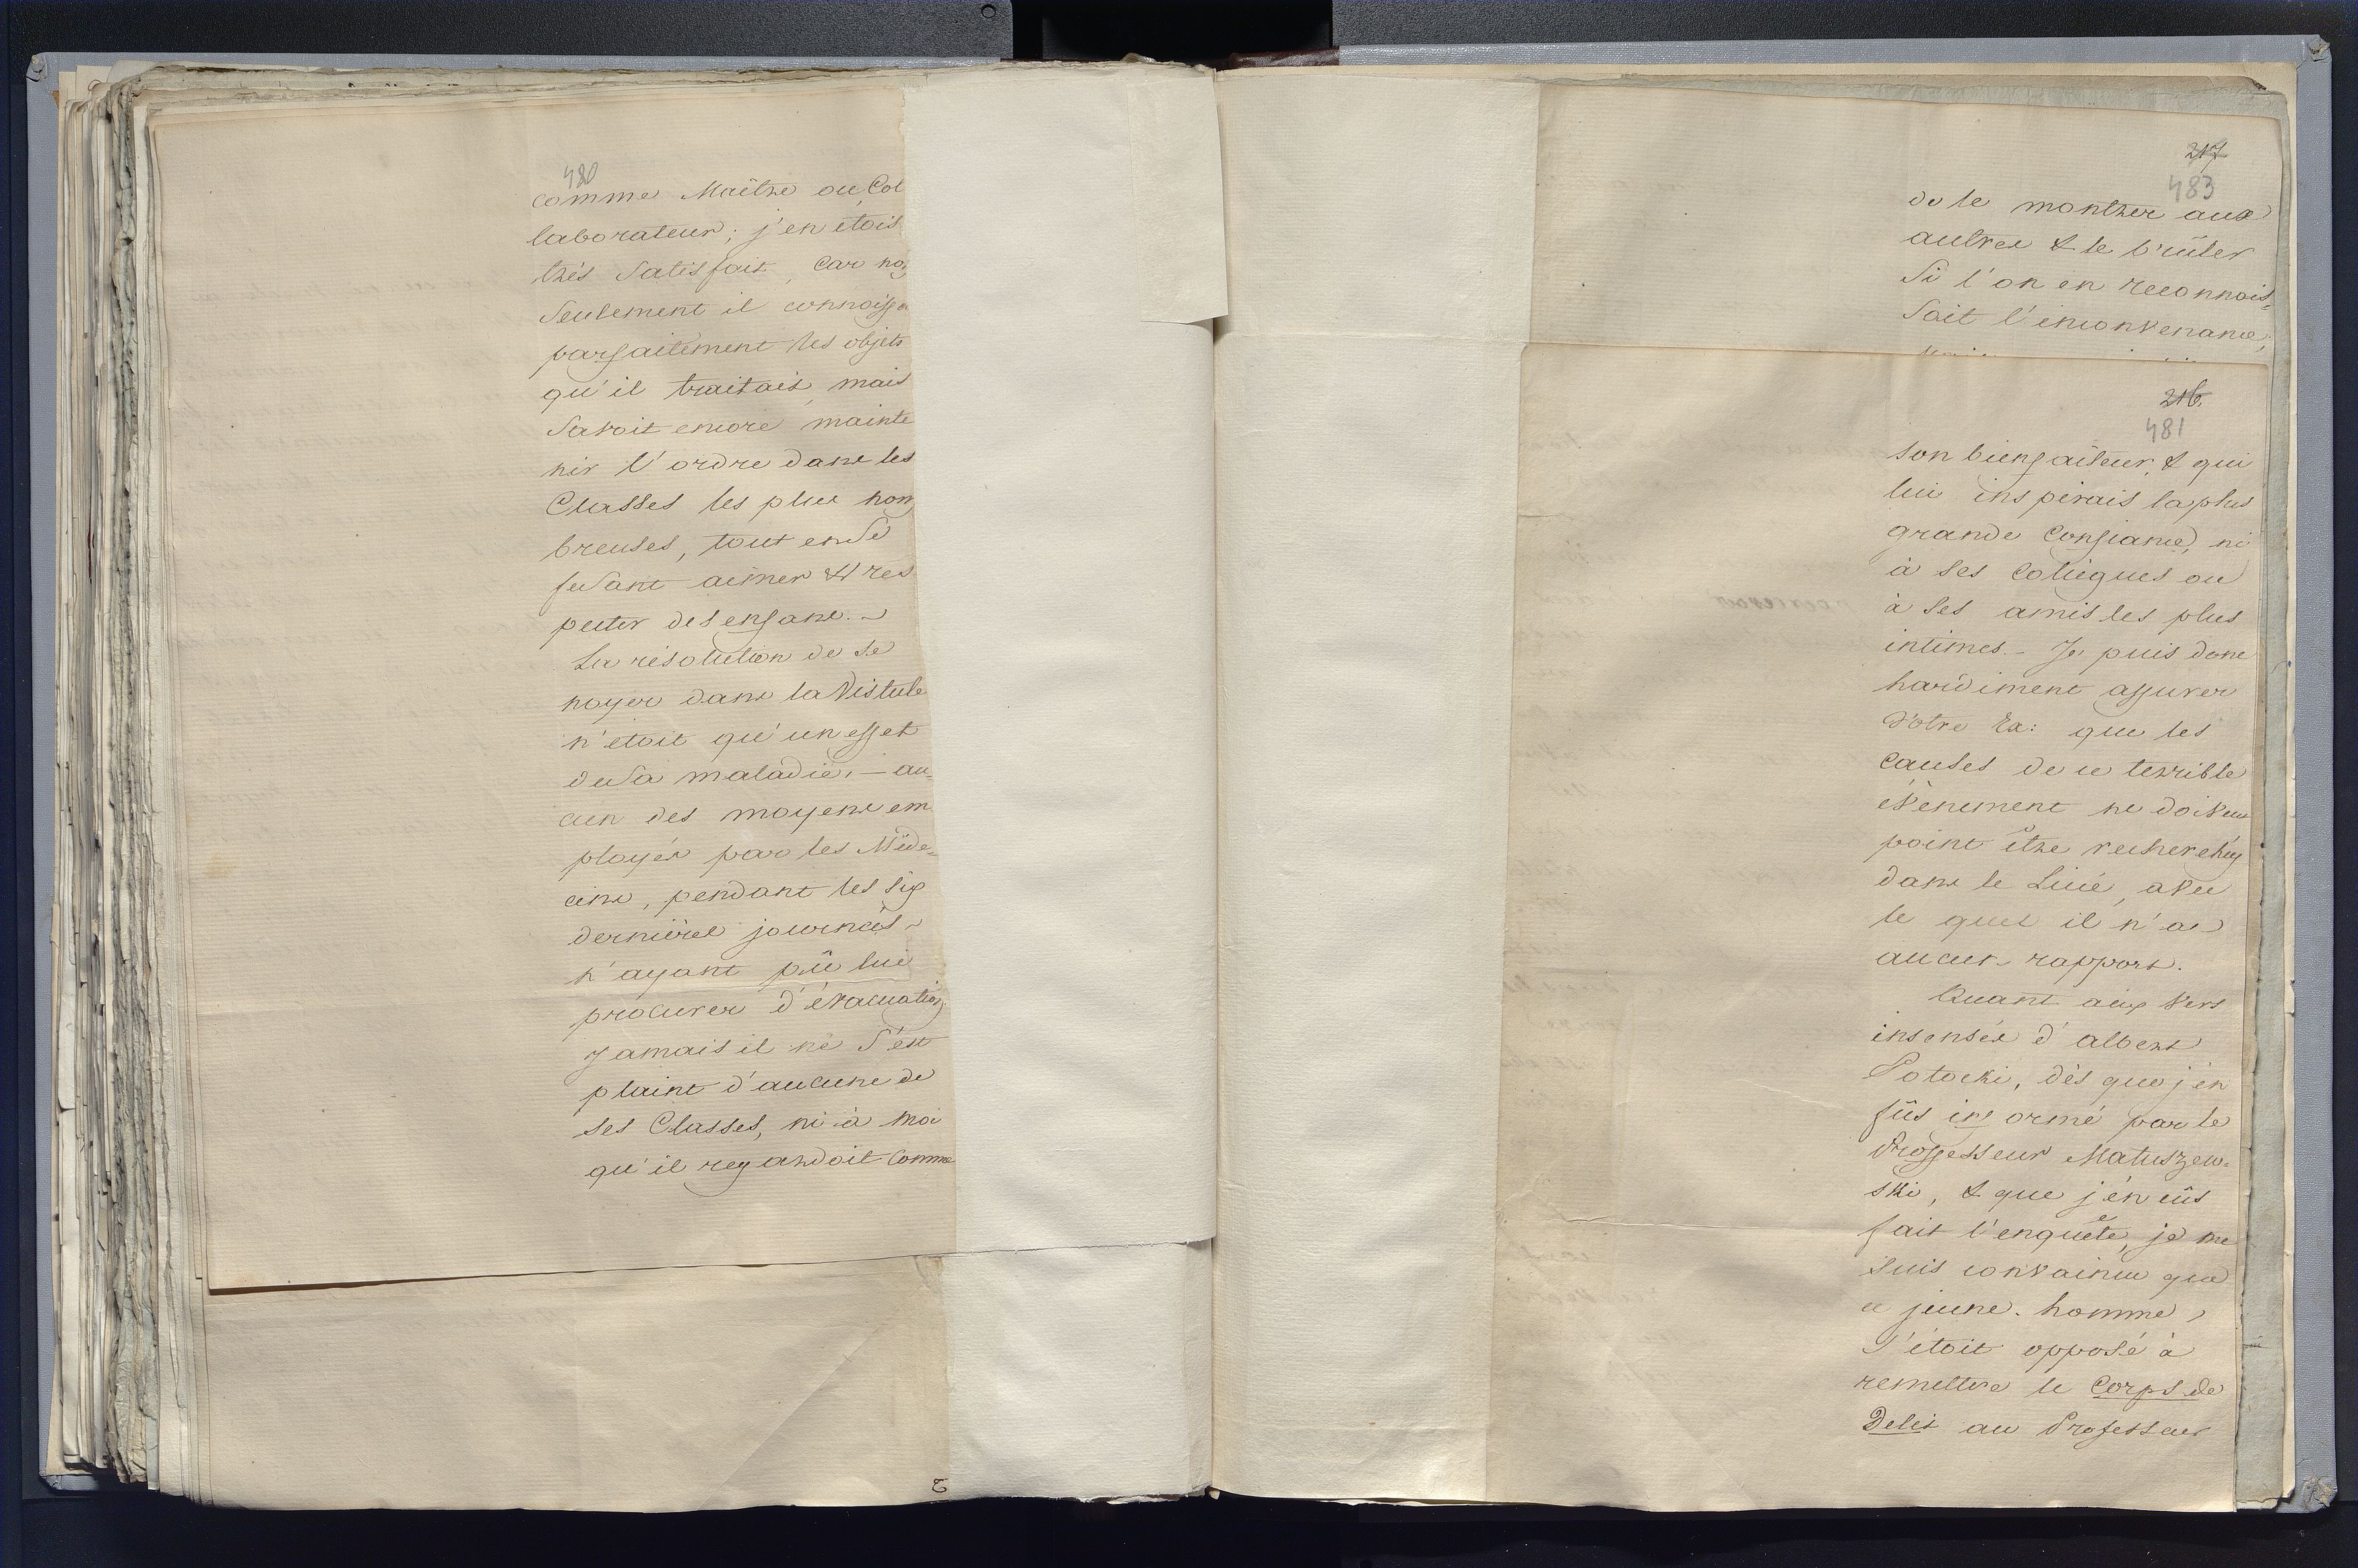 480
comme Maître ou Col
laborateur; j'en étois
très Satisfait, car no
Seulement il connoissa
parfaitement les objets
qu'il traitait, mais
Savoit encore mainte
nir l'ordre dans les
Classes les plus nom
breuses, tout en Se
feSant aimer & res
pecter des enfans. -
La résolution de se
noyer dans la Vistule
n'etoit qu'un effet
de Sa maladie, - au=
cun des moyens em
ployés par les Méde=
cins, pendant les six
dernières journées -
n'ayant pû lui
procurer d'évacuation
Jamais il ne S'est
plaint d'aucune de
ses Classes, ni à moi
qu'il regardoit comme
217
483
de le montrer aux
autres & le brûler
Si l'on en reconnois=
Sait l'inconvenance;
216.
481
son bienfaiteur, & qui
lui inspirais la plus
grande Confiance, ni
à ses Collègues ou
à ses amis les plus
intimes. - Je puis donc
hardiment assurer
Votre Ex: que les
causes de ce terrible
évènement ne doivent
point être recherchés
dans le Licée, avec
le quel il n'a
aucun rapport.
Quant aux vers
insensés d'albert
Potocki, dès que j'en
fûs informé par le
Professeur Matuszew=
ski, & que j'en eûs
fait l'enquête, je me
suis convaincu que
ce jeune-homme,
S'étoit opposé à
remettre le Corps de
Delit au Professeur
2